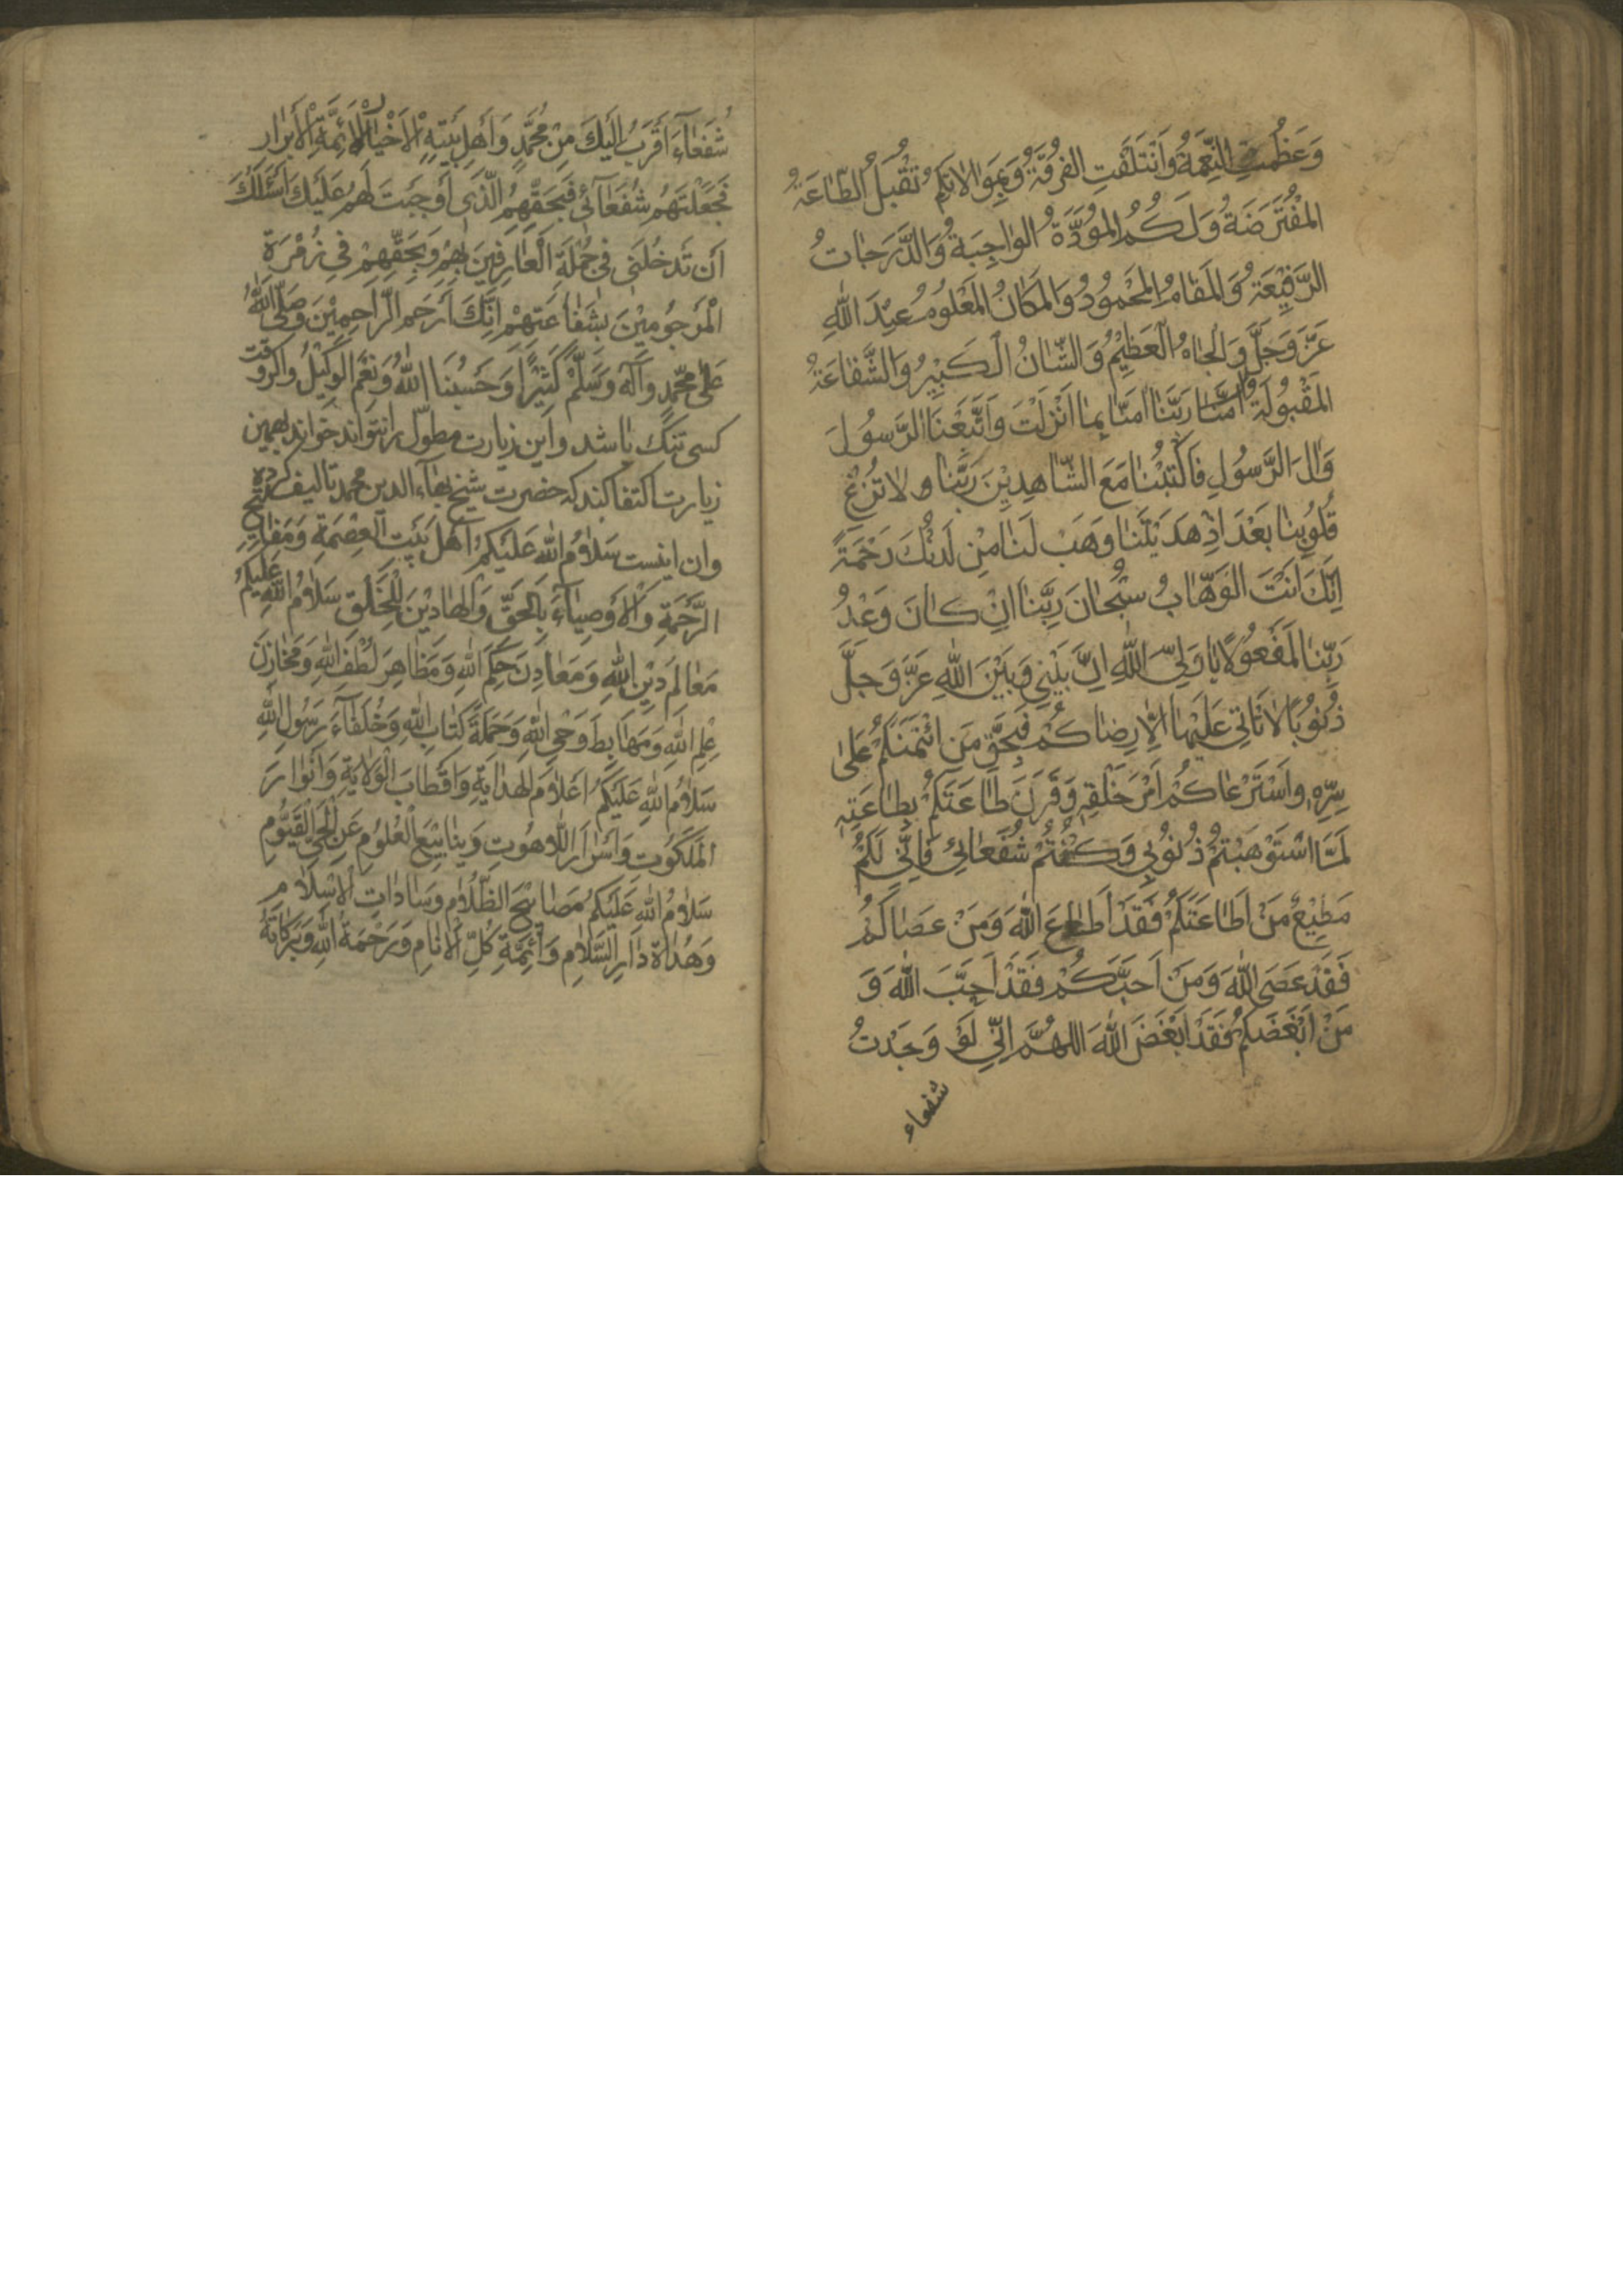 وَعَظُمَتِ النِّعْمَةُ وَائْتَلَفَتِ الفُرْقَةُ وَبِمُوَالاتِكُمْ تُقْبَلُ الطَّاعَةُ
المُفْتَرَضَةُ وَلَكُمُ المَوَدَّةُ الوَاجِبَةُ وَالدَّرَجَاتُ
الرَّفِيْعَةُ وَالمَقَامُ المَحْمُودُ وَالمَكَانُ المَعْلُومُ عِنْدَ اللّٰهِ
عَزَّ وَجَلَّ وَالجَاهُ العَظِيْمُ وَالشَّانُ الكَبِيْرُ وَالشَّفَاعَةُ
المَقْبُولَةُ رَبَّنَا امَنَّا بِمَا اَنْزَلْتَ وَاتَّبَعْنَا الرَّسُولَ
وَالَ الرَّسُولِ فَاكْتُبْنَا مَعَ الشَّاهِدِيْنَ رَبَّنَا وَلا تُزِغْ
قُلُوبَنَا بَعْدَ اِذْ هَدَيْتَنَا وَهَبْ لَنَا مِنْ لَدُنْكَ رَحْمَةً
اِنَّكَ اَنْتَ الوَهَّابُ سُبْحَانَ رَبِّنَا اِنْ كَانَ وَعْدُ
رَبِّنَا لَمَفْعُولًا يَا وَلِيَّ اللّٰهِ اِنَّ بَيْنِي وَبَيْنَ اللّٰهِ عَزَّ وَجَلَّ
ذُنُوبًا لا يَاتِي عَلَيْهَا اِلّا رِضَاكُمْ فَبِحَقِّ مَنِ ائْتَمَنَكُمْ عَلىٰ
سِرِّهِ وَاسْتَرْعَاكُمْ اَمْرَ خَلْقِهِ وَقَرَنَ طَاعَتَكُمْ بِطَاعَتِهِ
لَمَّا اسْتَوْهَبْتُمْ ذُنُوبِي وَكُنْتُمْ شُفَعَائِي فَاِنِّي لَكُمْ
مُطِيْعٌ مَنْ اَطَاعَكُمْ فَقَدْ اَطَاعَ اللّٰهَ وَمَنْ عَصَاكُمْ
فَقَدْ عَصَى اللّٰهَ وَمَنْ اَحَبَّكُمْ فَقَدْ اَحَبَّ اللّٰهَ وَ
مَنْ اَبْغَضَكُمْ فَقَدْ اَبْغَضَ اللّٰهَ اللهُمَّ اِنِّي لَوْ وَجَدْتُ
شفعاء
شُفَعَاءَ اَقْرَبَ اِلَيْكَ مِنْ مُحَمَّدٍ وَاَهْلِ بَيْتِهِ الاَخْيَارِ الاَئِمَّةِ الاَبْرَارِ
لَجَعَلْتَهُمْ شُفَعَائِي فَبِحَقِّهِمُ الَّذِي اَوْجَبْتَ لَهُمْ عَلَيْكَ اَسْئَلُكَ
اَنْ تُدْخِلَنِي فِي جُمْلَةِ الْعَارِفِيْنَ بِهِمْ وَبِحَقِّهِمْ فِي زُمْرَةِ
الْمَرْجُومِيْنَ بِشَفَاعَتِهِمْ اِنَّكَ اَرْحَمُ الرَّاحِمِيْنَ وَصَلَّى اللّٰهُ
عَلىٰ مُحَمَّدٍ وَآلِهِ وَسَلَّمَ كَثِيْرًا وَحَسْبُنَا اللّٰهُ وَنِعْمَ الوَكِيْلُ واكر وقت
كسى تنك باشد واين زيارت مطوّل را نتواند خواند بهمين
زيارت اكتفا كند كه حضرت شيخ بهاء الدين محمد تاليف كرده
وان اينست سَلامُ اللّٰهِ عَلَيْكُمْ اَهْلَ بَيْتِ العِصْمَةِ وَمَفَاتِيْحِ
الرَّحْمَةِ وَالاَوْصِيَاءَ بِالحَقِّ وَالهَادِيْنَ لِلْخَلْقِ سَلامُ اللّٰهِ عَلَيْكُمْ
مَعَالِمَ دِيْنِ اللّٰهِ وَمَعَادِنَ حِكَمِ اللّٰهِ وَمَظَاهِرَ لُطْفِ اللّٰهِ وَمَخَازِنَ
عِلْمِ اللّٰهِ وَمَهَابِطَ وَحْيِ اللّٰهِ وَحَمَلَةَ كِتَابِ اللّٰهِ وَخُلَفَاءَ رَسُولِ اللّٰهِ
سَلامُ اللّٰهِ عَلَيْكُمْ اَعْلامَ الهِدَايَةِ وَاَقْطَابَ الْوَلايَةِ وَاَنْوَارَ
المَلَكُوتِ وَاَسْرَارَ اللّاهُوتِ وَيَنَابِيْعَ الْعُلُومِ عَنِ الْحَيِّ الْقَيُّومِ
سَلامُ اللّٰهِ عَلَيْكُمْ مَصَابِيْحَ الظَّلامِ وَسَادَاتِ الاِسْلامِ
وَهُدَاةَ دَارِ السَّلامِ وَاَئِمَّةَ كُلِّ الاَنَامِ وَرَحْمَةُ اللّٰهِ وَبَرَكَاتُهُ